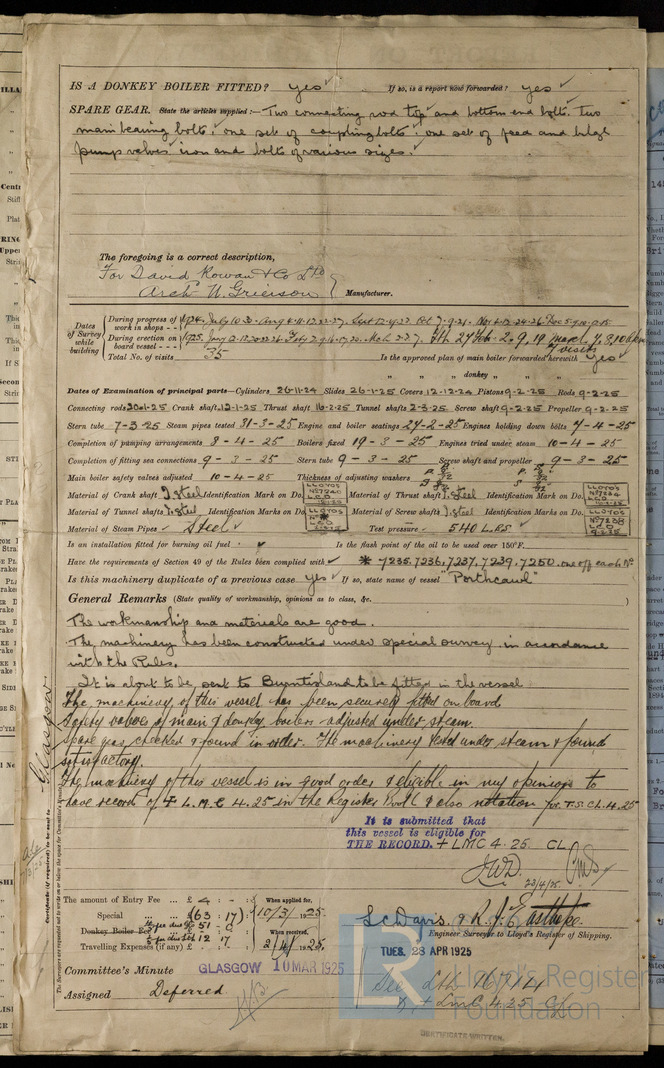 IS A DONKEY BOILER FITTED? yes ✓ If so, is a report now forwarded? yes ✓
SPARE GEAR. State the articles supplied:— Two connecting rod top and bottom end bolts. Two
main bearing bolts, one set of coupling bolts, one set of feed and bilge
pump valves iron and bolts of various sizes.
The foregoing is a correct description,
For David Rowan & Co Ltd
Arch W. Grierson Manufacturer.
Dates of Survey while building
During progress of work in shops - -
During erection on board vessel - - -
Total No. of visits 35
Is the approved plan of main boiler forwarded herewith yes
" " " donkey " " "
Dates of Examination of principal parts—Cylinders 26-11-24 Slides 26-1-25 Covers 12-12-24 Pistons 9-2-25 Rods 9-2-25
Connecting rods 20-1-25 Crank shaft 12-1-25 Thrust shaft 16-2-25 Tunnel shafts 2-3-25 Screw shaft 9-2-25 Propeller 9-2-25
Stern tube 7-3-25 Steam pipes tested 31-3-25 Engine and boiler seatings 24-2-25 Engines holding down bolts 7-4-25
Completion of pumping arrangements 8-4-25 Boilers fixed 19-3-25 Engines tried under steam 10-4-25
Completion of fitting sea connections 9-3-25 Stern tube 9-3-25 Screw shaft and propeller 9-3-25
Main boiler safety valves adjusted 10-4-25 Thickness of adjusting washers
Material of Crank shaft I. steel Identification Mark on Do. Material of Thrust shaft I. steel Identification Mark on Do.
Material of Tunnel shafts I. steel Identification Marks on Do. Material of Screw shafts I. steel Identification Marks on Do.
Material of Steam Pipes Steel ✓ Test pressure 540 Lbs ✓
Is an installation fitted for burning oil fuel Is the flash point of the oil to be used over 150°F.
Have the requirements of Section 49 of the Rules been complied with ✓ * 7235, 7236, 7237, 7239, 7250. one off each No
Is this machinery duplicate of a previous case yes ✓ If so, state name of vessel "Porthcawl"
General Remarks (State quality of workmanship, opinions as to class, &c. )
The workmanship and materials are good.
The machinery has been constructed under special survey in accordance
with the Rules.
It is about to be sent to Burntisland to be fitted in the vessel
The machinery of this vessel has been securely fitted on board
Safety valves of main & donkey boilers adjusted under steam.
Spare gear checked & found in order. The machinery tested under steam & found
satisfactory.
The machinery of this vessel is in good order & eligible in my opinion to
have record of + L.M.C 4.25 in the Register Book & also notation for T.S. CL. 4.25
It is submitted that
this vessel is eligible for
THE RECORD. + LMC 4.25 CL
23/4/25.
Glasgow
The amount of Entry Fee ... £ 4 : - : When applied for,
Special ... £ 63 : 17 : 10/3/1925
Donkey Boiler Fee
Travelling Expenses (if any) £ When received, 2/4/1925
L.C. Davis. & R.J. Easthope.
Engineer Surveyor to Lloyd's Register of Shipping.
Committee's Minute GLASGOW 10 MAR 1925
TUES. 28 APR 1925
Assigned Deferred
+ LMC 4.25 CL
Lloyd's Register
Foundation
CERTIFICATE WRITTEN.